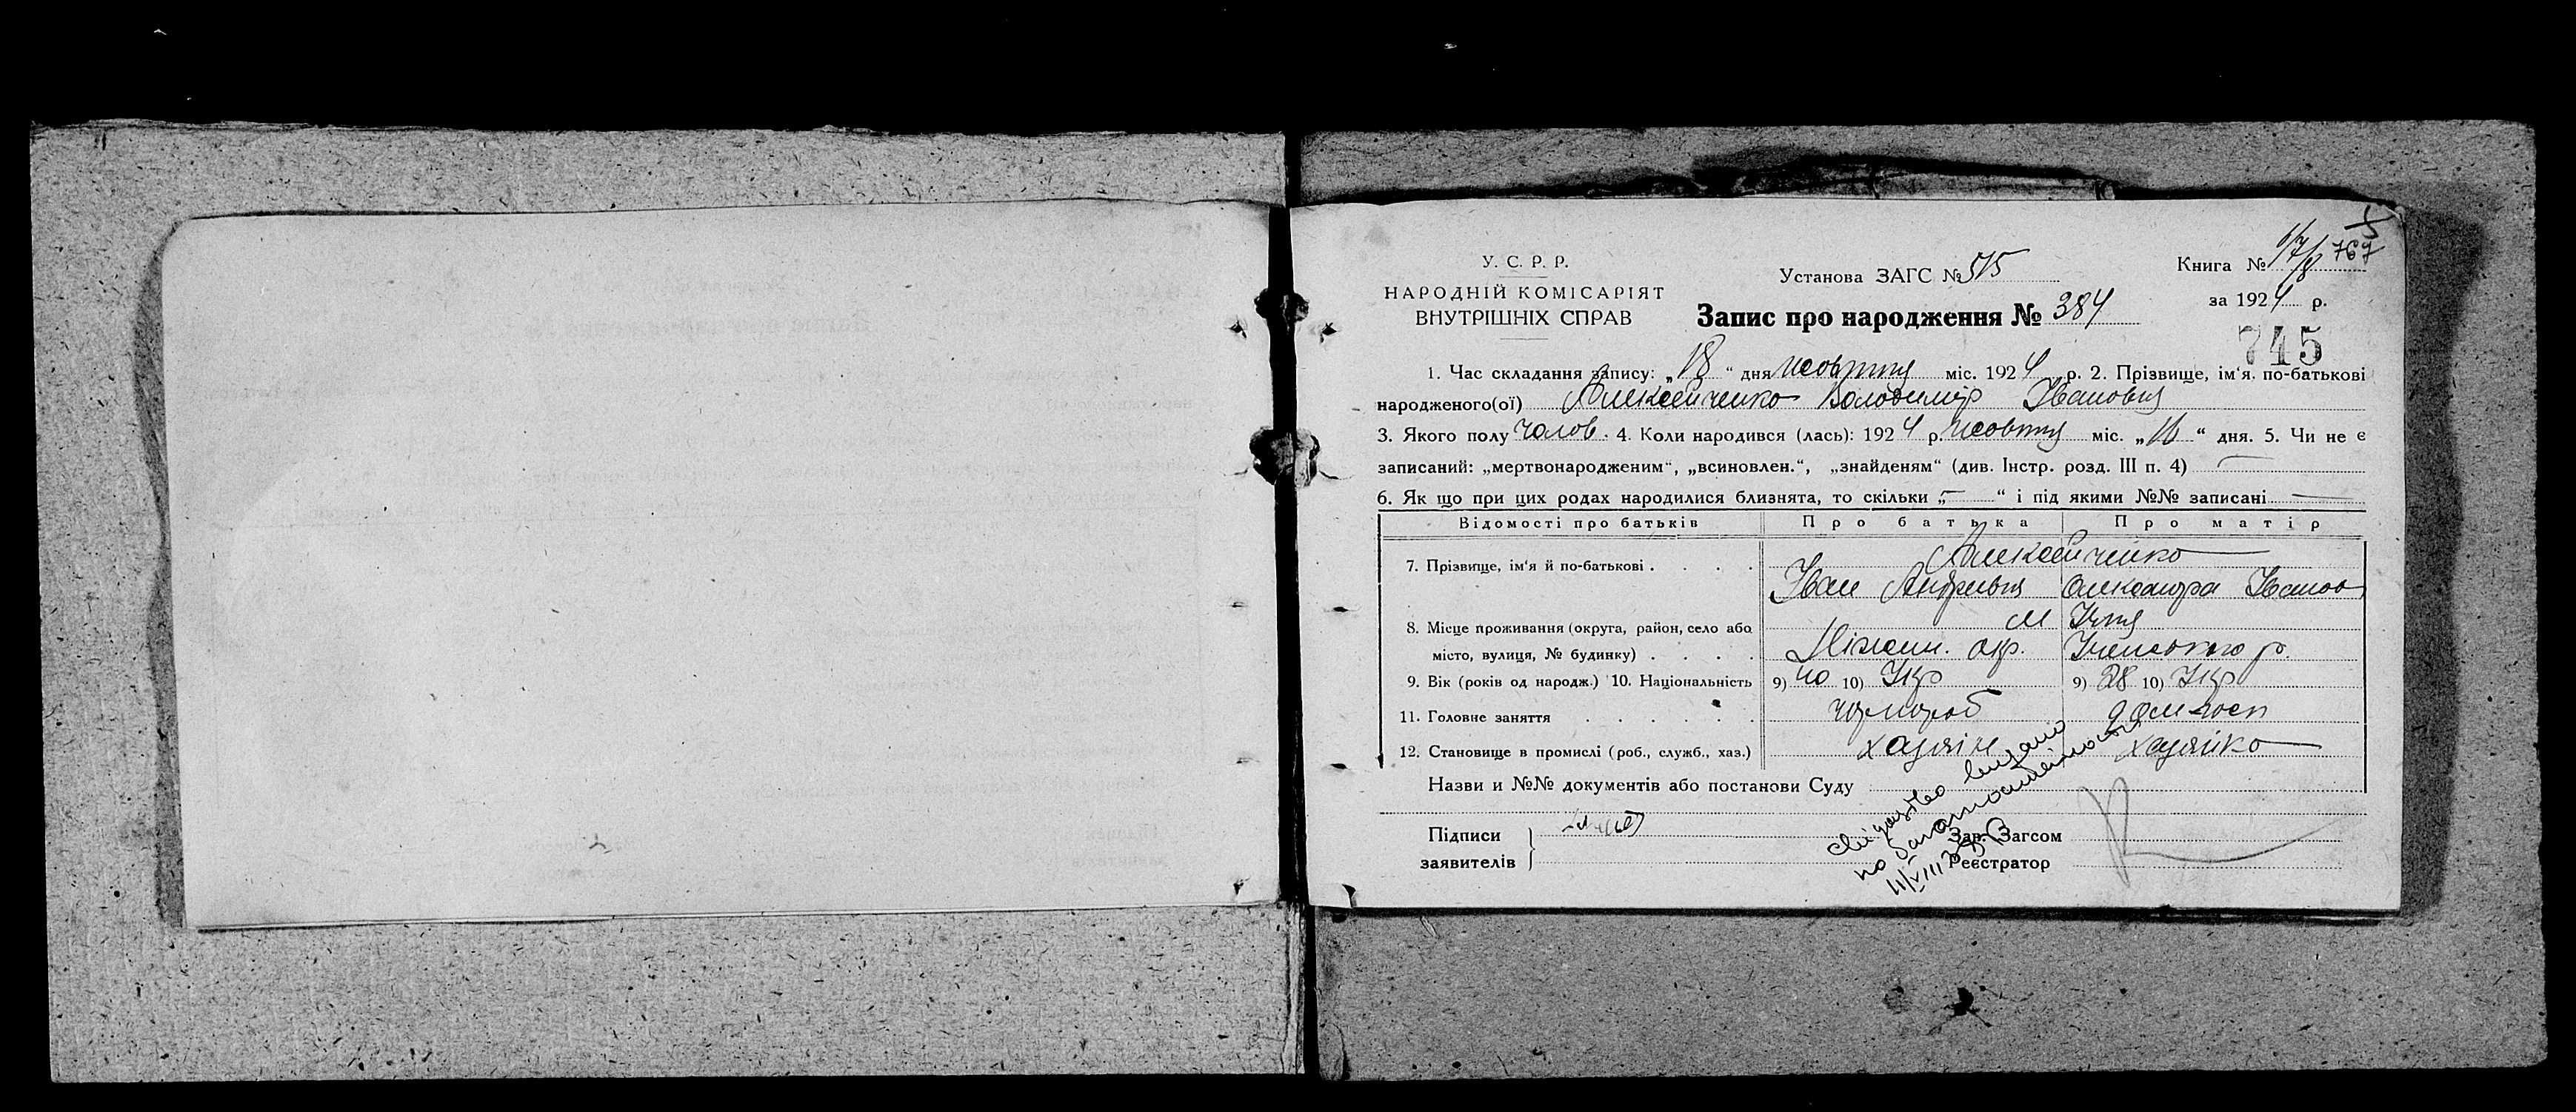 У. С. Р. Р.
НАРОДНІЙ КОМІСАРІЯТ
ВНУТРІШНІХ СПРАВ
Установа ЗАГС № 515
Запис про народження № 384
Книга № 767
за 1924 р.
745
1. Час складання запису: „18“ дня жовтня міс. 1924 р. 2. Прізвище, ім'я, по-батькові
народженого(ої) Алексейченко Володимір Іванович
3. Якого полу чолов. 4. Коли народився (лась): 1924 р. жовтня міс. „16“ дня. 5. Чи не є
записаний: „мертвонародженим“, „всиновлен.“, „знайденям“ (див. Інстр. розд. III п. 4) —
6. Як що при цих родах народилися близнята, то скільки „—“ і під якими №№ записані —
Відомості про батьків Про батька Про матір
7. Прізвище, ім'я й по-батькові . . . . Алексейченко
Іван Андреевич Олександра Іванов
8. Місце проживання (округа, район, село або м Ічня
місто, вулиця, № будинку) . . . . Ніжин. окр. Іченського р.
9. Вік (років од народж.) 10. Національність 9) 40 10) Укр 9) 28 10) Укр
11. Головне заняття . . . . . . чорнороб домгосп
12. Становище в промислі (роб., служб., хаз.) хазяін хазяйка
Назви и №№ документів або постанови Суду
Підписи
заявителів
Зав. Загсом
Реєстратор